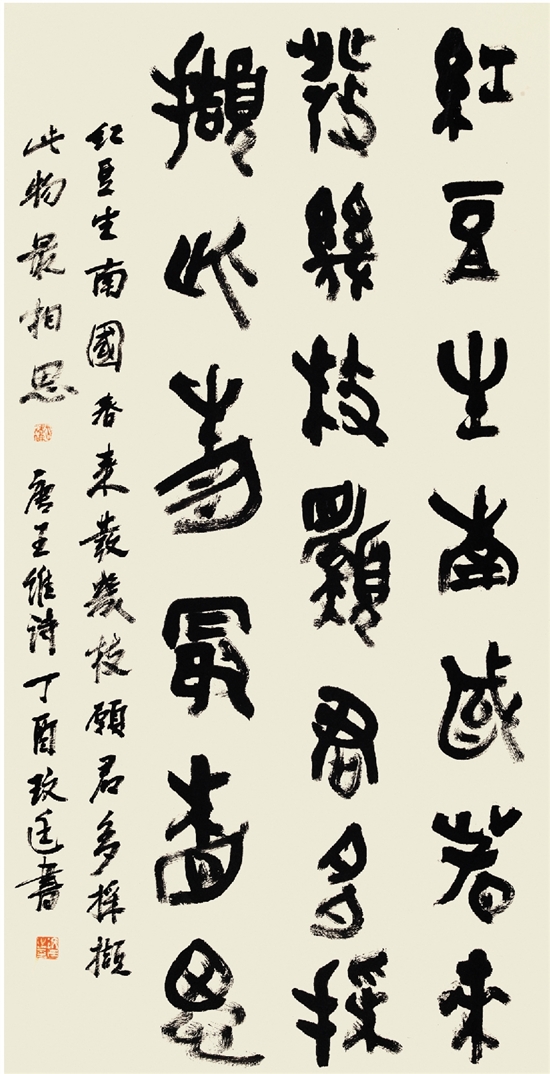 紅豆生南國春來
發幾枝願君多採
擷此物最相思
紅豆生南國春来發幾枝願君多採擷
此物最相思 唐王維詩丁酉廷書